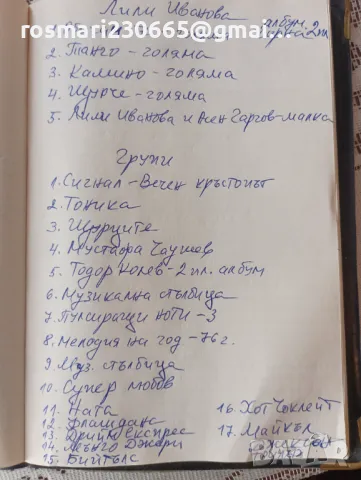 Лили Иванова
албум
2. Танго - голяма
3. Камино - голяма
4. Щурче - голяма
5. Лили Иванова и Асен Гаргов - малка
Групи
1. Сигнал - Вечен кръстопът
2. Тоника
3. Щурците
4. Мустафа Чаушев
5. Тодор Колев - 2 пл. албум
6. Музикална стълбица
7. Пулсиращи ноти - 3
8. Мелодия на год - 76 г.
9. Муз. стълбица
10. Супер любов
11. Ната
12. Фламдана
13. Дрийм Експрес
14. Мънго Джери
15. Бийтълс
16. Хот Чоклейт
17. Майкъл
Джексън
rosmari230665@gmail.com